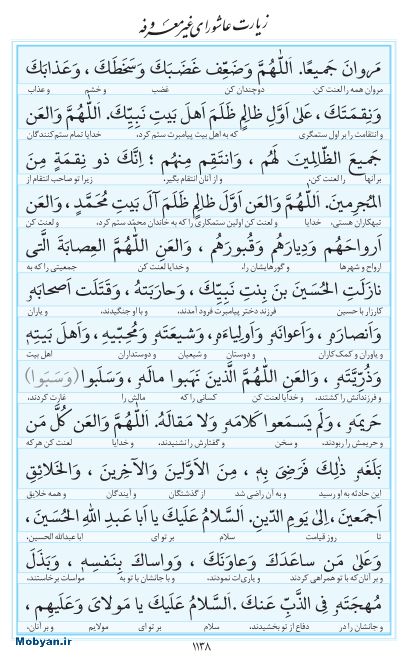 زیارت عاشورای غیر معروفه
مَروانَ جَمیعًا. اَللّٰهُمَّ وَضَعِّف غَضَبَكَ وَسَخَطَكَ ، وَعَذابَكَ
مروان همه را لعنت کن. دوچندان کن غضب و خشم و عذاب
وَنِقمَتَكَ ، عَلیٰ اَوَّلِ ظالِمٍ ظَلَمَ اَهلَ بَیتِ نَبِیِّكَ. اَللّٰهُمَّ وَالعَن
و انتقامت را بر اول ستمگری که به اهل بیت پیامبرت ستم کرد. خدایا تمام ستم‌کنندگان
جَمیعَ الظّالِمینَ لَهُم ، وَانتَقِم مِنهُم ؛ اِنَّكَ ذو نِقمَةٍ مِنَ
بر آنها را لعنت کن. و از آنان انتقام بگیر. زیرا تو صاحب انتقام از
المُجرِمینَ. اَللّٰهُمَّ وَالعَن اَوَّلَ ظالِمٍ ظَلَمَ آلَ بَیتِ مُحَمَّدٍ ، وَالعَن
تبهکاران هستی. خدایا و لعنت کن اولین ستمکاری را که به خاندان محمّد ستم کرد. و لعنت کن
اَرواحَهُم وَدِیارَهُم وَقُبورَهُم ، وَالعَنِ اللّٰهُمَّ العِصابَةَ الَّتی
ارواح و شهرها و گورهایشان را. و خدایا لعنت کن جمعیتی را که به
نازَلَتِ الحُسَینَ بنَ بِنتِ نَبِیِّكَ ، وَحارَبَتهُ ، وَقَتَلَت اَصحابَهٗ
کارزار با حسین فرزند دختر پیامبرت فرود آمدند. و با او جنگیدند. و یاران
وَاَنصارَهٗ ، وَاَعوانَهٗ وَاَولِیاءَهٗ ، وَشیعَتَهٗ وَمُحِبّیهِ ، وَاَهلَ بَیتِهٖ
و یاوران و کمک کاران و دوستان و شیعیان و دوستداران اهل بیت
وَذُرِّیَّتَهٗ ، وَالعَنِ اللّٰهُمَّ الَّذینَ نَهَبوا مالَهٗ ، وَسَلَبوا (وَسَبَوا)
و فرزندانش را کشتند. و خدایا لعنت کن کسانی را که مالش را غارت کردند.
حَریمَهٗ ، وَلَم یَسمَعوا کَلامَهٗ وَلا مَقالَهٗ. اَللّٰهُمَّ وَالعَن کُلَّ مَن
و حریمش را ربودند. و سخن و گفتارش را نشنیدند. و خدایا لعنت کن هر که
بَلَغَهٗ ذٰلِكَ فَرَضِیَ بِهٖ ، مِنَ الاَوَّلینَ وَالآخِرینَ ، وَالخَلائِقِ
این حادثه به او رسید و به آن راضی شد از گذشتگان و آیندگان و همه خلایق
اَجمَعینَ، اِلیٰ یَومِ الدّینِ. اَلسَّلامُ عَلَیكَ یا اَبا عَبدِ اللّٰهِ الحُسَینَ،
تا روز قیامت سلام بر تو ای ابا عبدالله الحسین.
وَعَلیٰ مَن ساعَدَكَ وَعاوَنَكَ ، وَواساكَ بِنَفسِهٖ ، وَبَذَلَ
و بر آنان که با تو همراهی کردند و یاری‌ات نمودند. و با جانشان با تو به مواسات برخاستند.
مُهجَتَهٗ فِی الذَّبِّ عَنكَ . اَلسَّلامُ عَلَیكَ یا مَولایَ وَعَلَیهِم ،
و جانشان را در دفاع از تو بخشیدند. سلام بر تو ای مولایم و بر آنان.
۱۱۳۸
Mobyan.ir